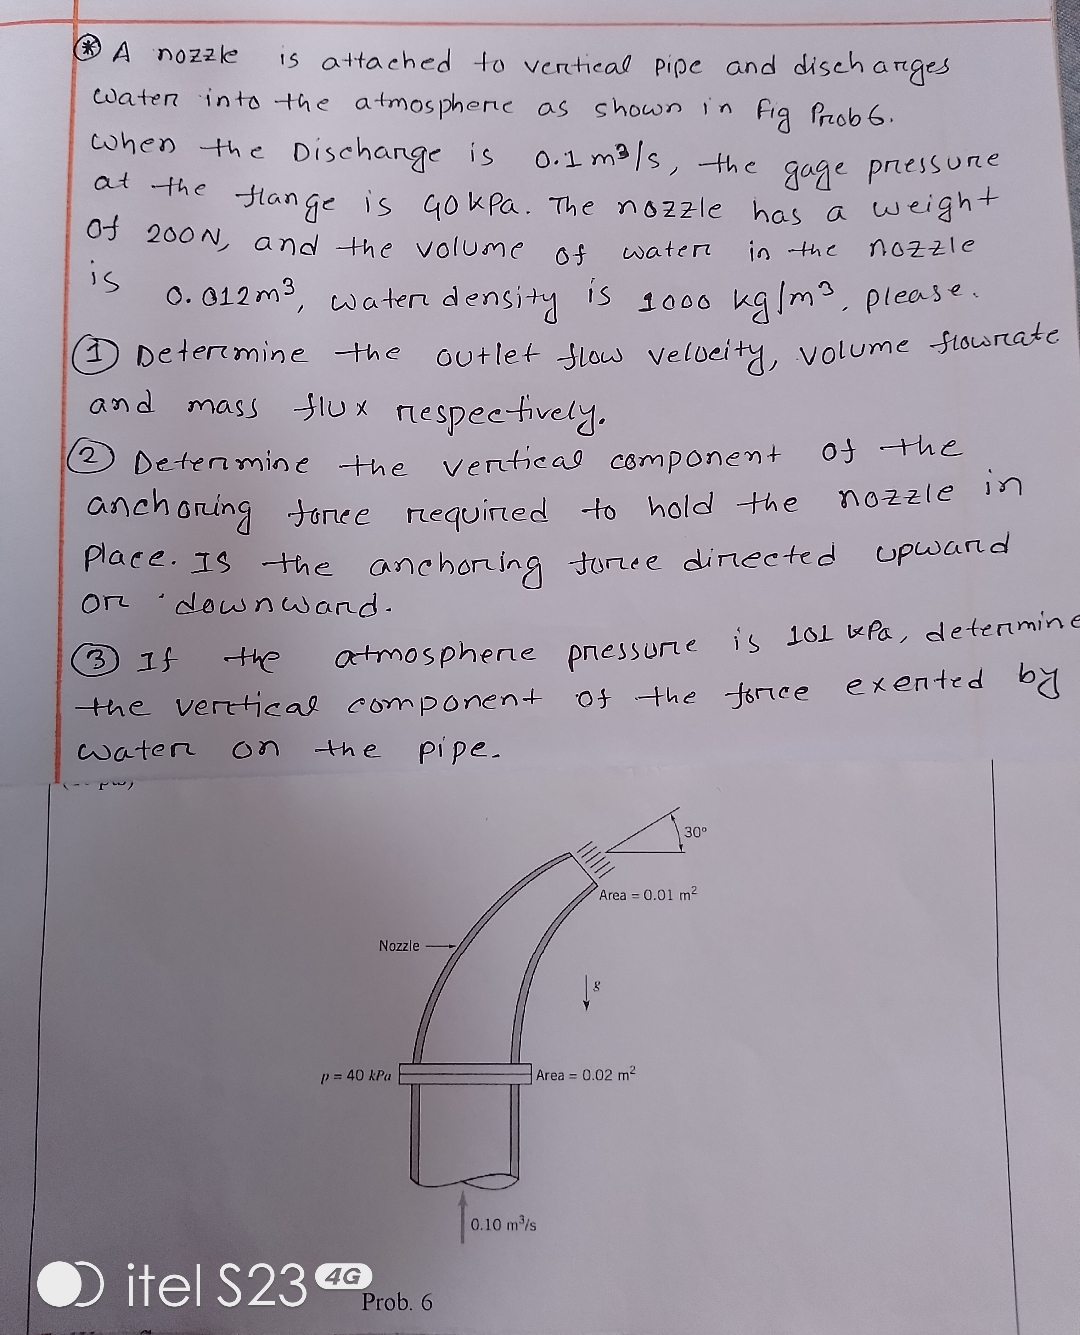 * A nozzle is attached to vertical pipe and discharges
water into the atmosphere as shown in fig Prob 6.
When the Discharge is 0.1 m³/s, the gage pressure
at the flange is 40 kPa. The nozzle has a weight
of 200 N, and the volume of water in the nozzle
is 0.012 m³, water density is 1000 kg/m³, please.
1 Determine the outlet flow velocity, volume flowrate
and mass flux respectively.
2 Determine the vertical component of the
anchoring force required to hold the nozzle in
place. IS the anchoring force directed upward
or downward.
3 If the atmosphere pressure is 101 kPa, determine
the vertical component of the force exerted by
water on the pipe.
30°
Area = 0.01 m²
Nozzle
g
p = 40 kPa
Area = 0.02 m²
0.10 m³/s
itel S23 4G
Prob. 6